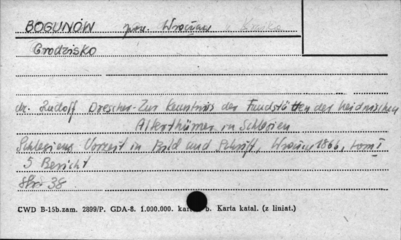 BOGUNÓW pow. Wrocław
Grodzisko
dr. Rudolf Drescher - Zur Kenntniss der Fundstätten der heidnischen
Alterthümer in Schlesien
Schlesiens Vorzeit in Bild und Schrift, Wrocław 1866, tom I
5 Bericht
Str. 38
CWD B-15b.zam. 2899/P. GDA-8. 1.000.000. kar. b. Karta katal. (z liniat.)